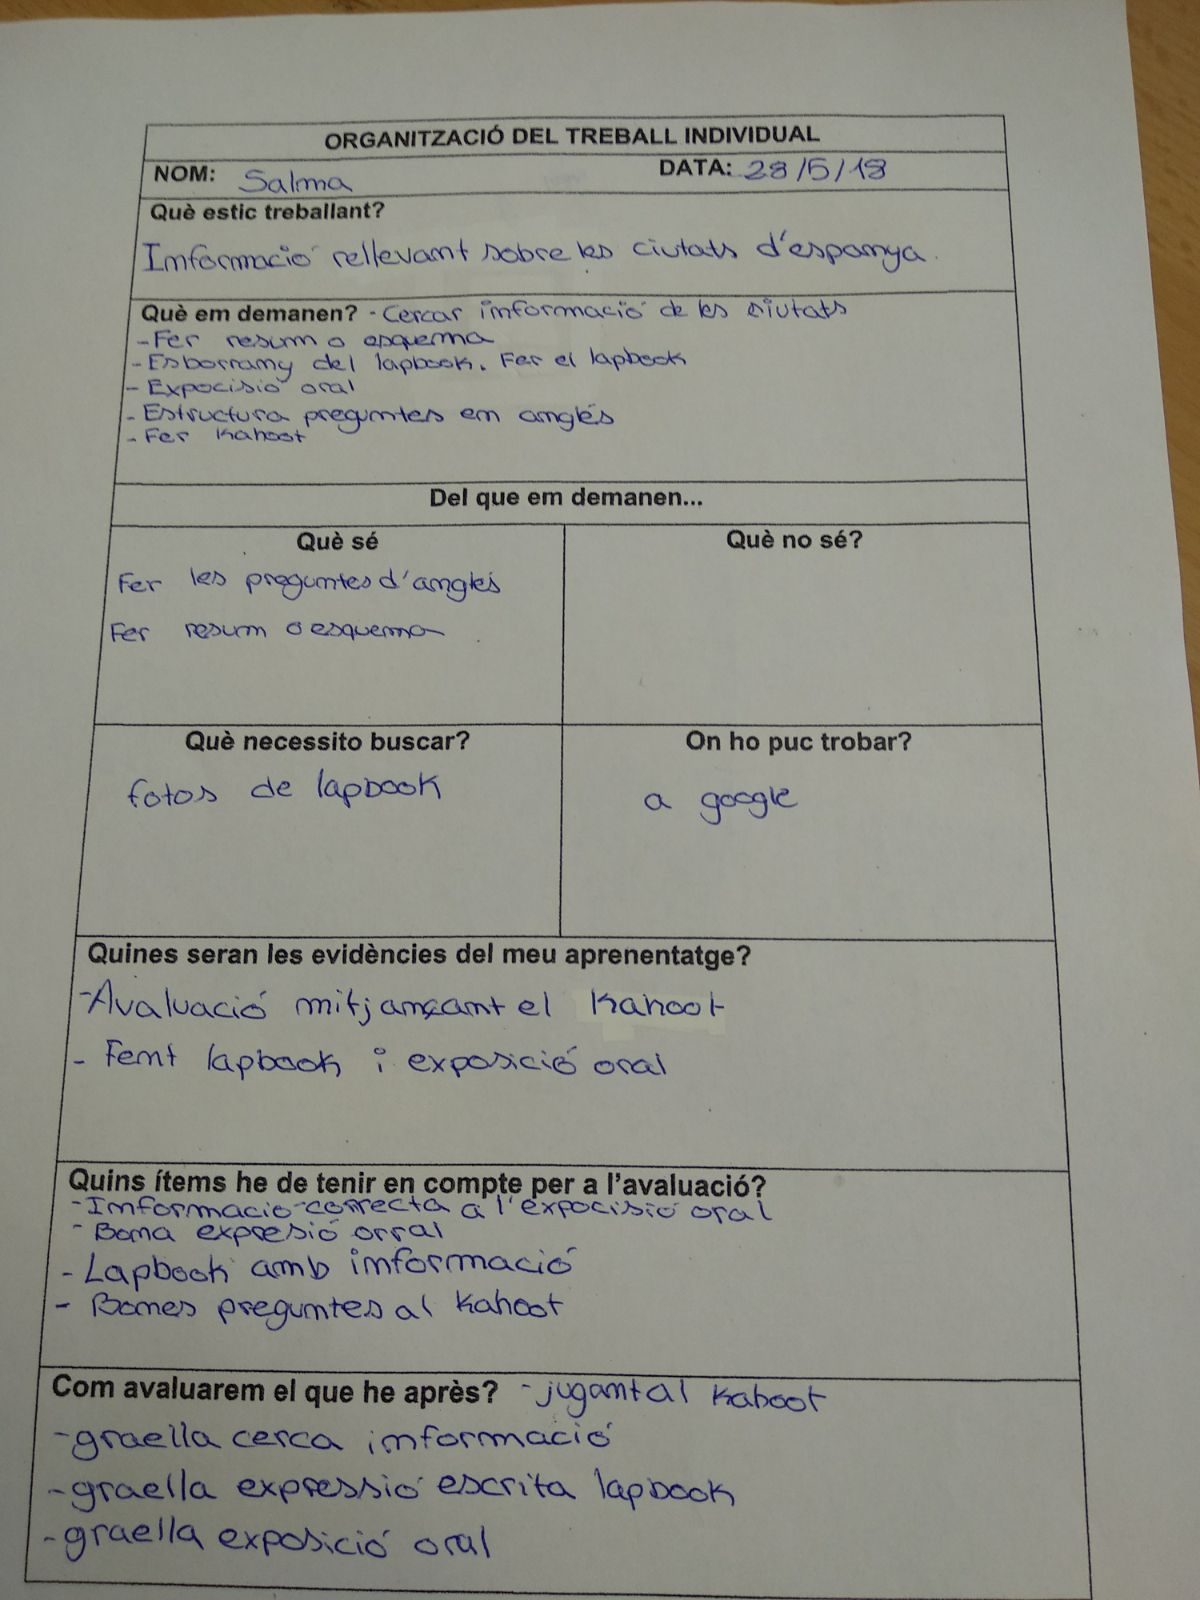 ORGANITZACIÓ DEL TREBALL INDIVIDUAL
NOM: Salma DATA: 28/5/18
Què estic treballant?
Informació rellevant sobre les ciutats d'espanya.
Què em demanen? - Cercar informació de les ciutats
- Fer resum o esquema
- Esborrany del lapbook. Fer el lapbook
- Expocisió oral
- Estructura preguntes en anglés
- Fer Kahoot
Del que em demanen...
Què sé
Fer les preguntes d'anglés
Fer resum o esquema
Què no sé?
Què necessito buscar?
fotos de lapbook
On ho puc trobar?
a google
Quines seran les evidències del meu aprenentatge?
- Avaluació mitjançant el Kahoot
- Fent lapbook i exposició oral
Quins ítems he de tenir en compte per a l'avaluació?
- Informacio correcta a l'expocisió oral
- Bona expresió orral
- Lapbook amb informació
- Bones preguntes al Kahoot
Com avaluarem el que he après? - jugant al Kahoot
- graella cerca informació
- graella expressió escrita lapbook
- graella exposició oral